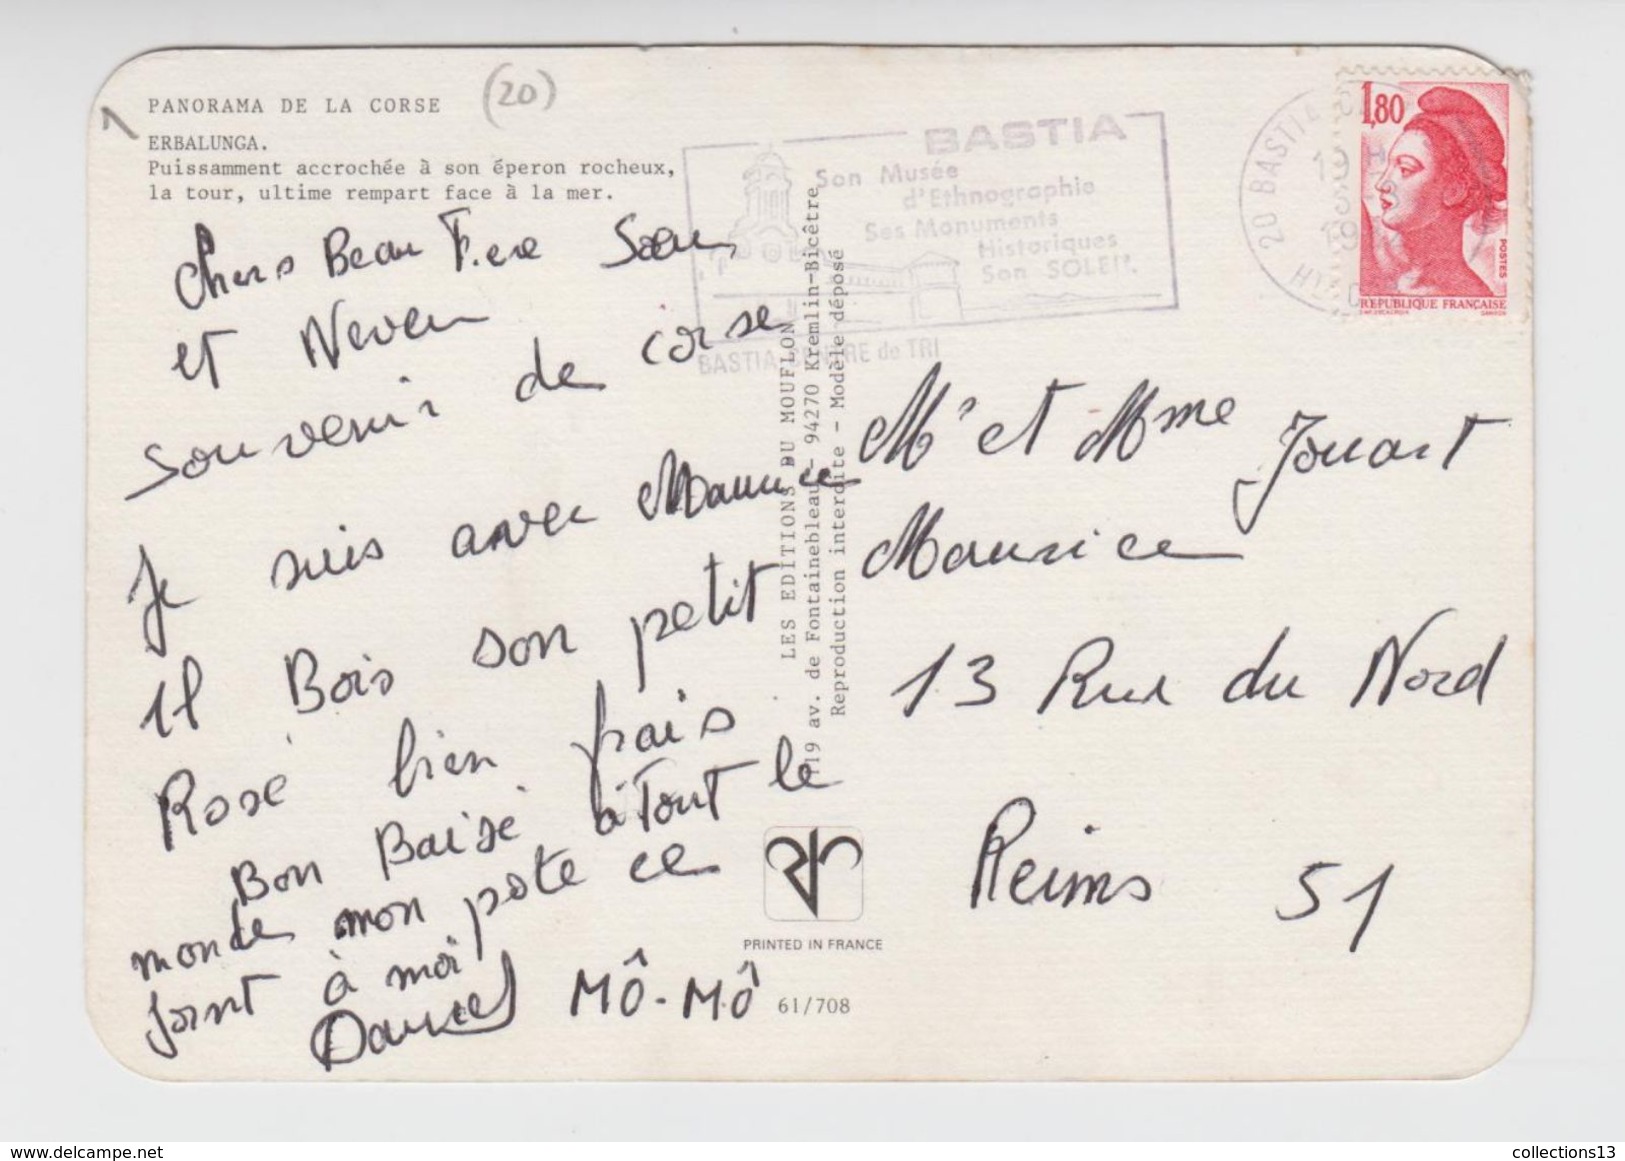 PANORAMA DE LA CORSE
(20)
ERBALUNGA.
Puissamment accrochée à son éperon rocheux,
la tour, ultime rempart face à la mer.
Chers Beau Frere Sœur
et Neveu
Souvenir de corse
Je suis avec Maurice
il Bois son petit
Rosé bien frais
Bon Baisé à Tout le
monde mon pote ce
joint à moi
Daniel MÔ-MÔ
BASTIA
Son Musée
d'Ethnographie
Ses Monuments
Historiques
Son SOLEIL
BASTIA CENTRE de TRI
20 BASTIA
19 H
1,80
POSTES
REPUBLIQUE FRANÇAISE
LES EDITIONS DU MOUFLON
119 av. de Fontainebleau - 94270 Kremlin-Bicêtre
Reproduction interdite - Modèle déposé
Mr et Mme Jouart
Maurice
13 Rue du Nord
Reims 51
PRINTED IN FRANCE
61/708
collections13